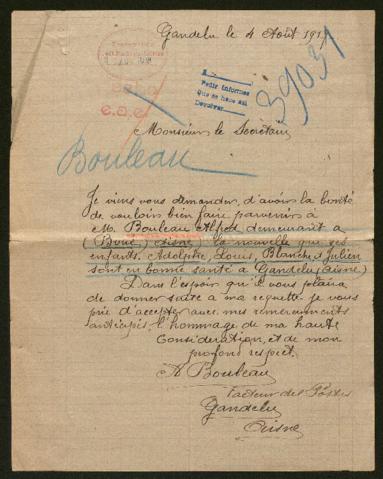 Gandelu le 4 Août 191
39031
Pedir informes
que se hace así
Devolver
e.a.e.
Monsieur le Secrétaire
Bouleau
Je viens vous demander, d'avoir la bonté
de vouloir bien faire parvenir à
M. Bouleau Alfred demeurant à
(Boué) (Aisne) la nouvelle que ses
enfants. Adolphe, Louis, Blanche et Julien
sont en bonne santé à Gandelu (Aisne)
Dans l'espoir qu'il vous plaira
de donner suite à ma requête je vous
prie d'accepter avec mes remerciements
anticipés, l'hommage de ma haute
Considération, et de mon
profond respect.
Bouleau
Facteur des Postes
Gandelu
Aisne